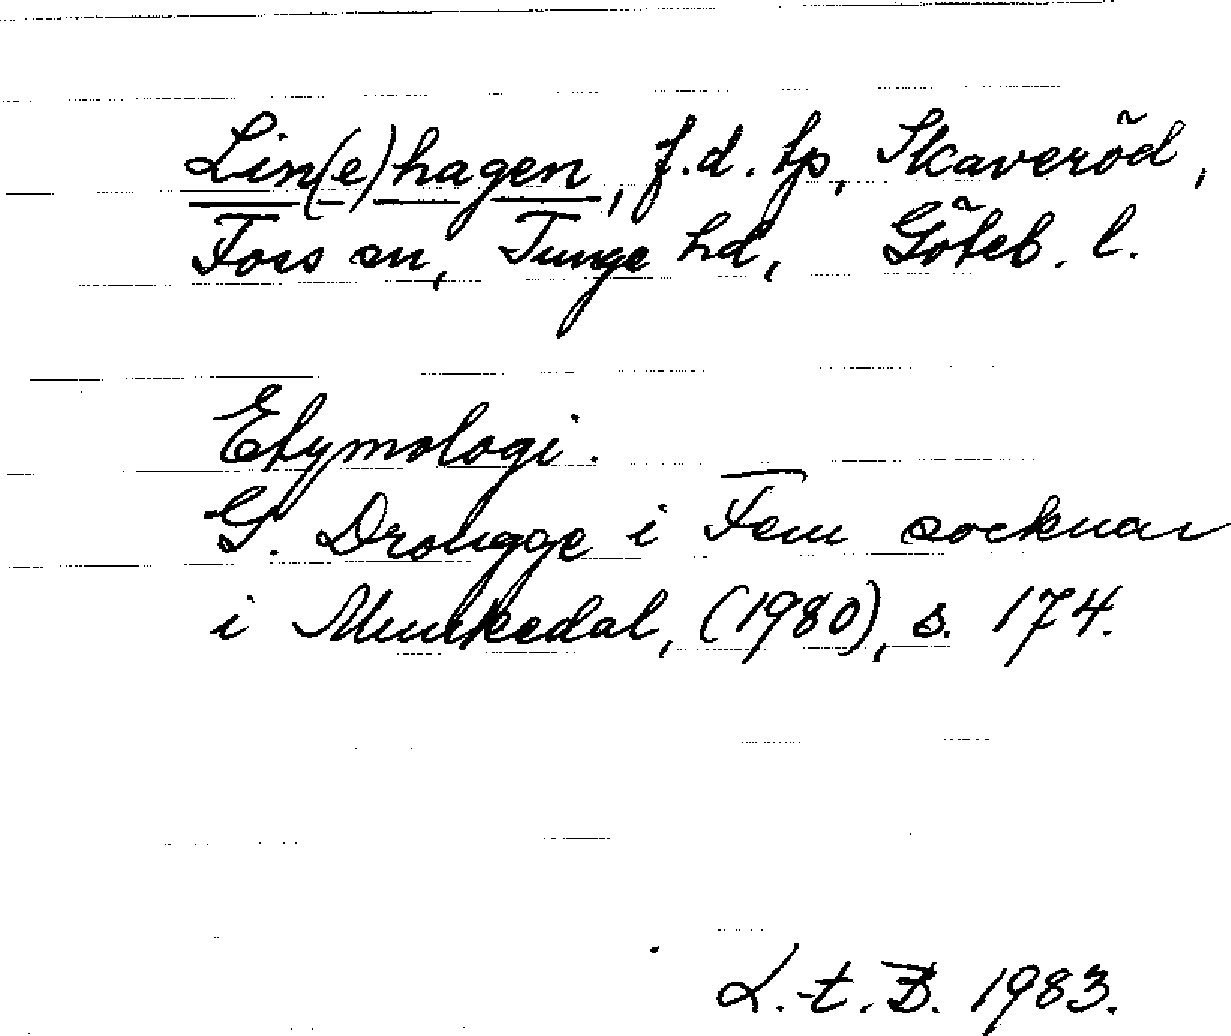 Lin(e)hagen, f.d. tp, Skaveröd,
Foss sn, Tunge hd, Göteb. l.
Etymologi.
G. Drougge i Fem socknar
i Munkedal, (1980), s. 174.
L.t.B. 1983.